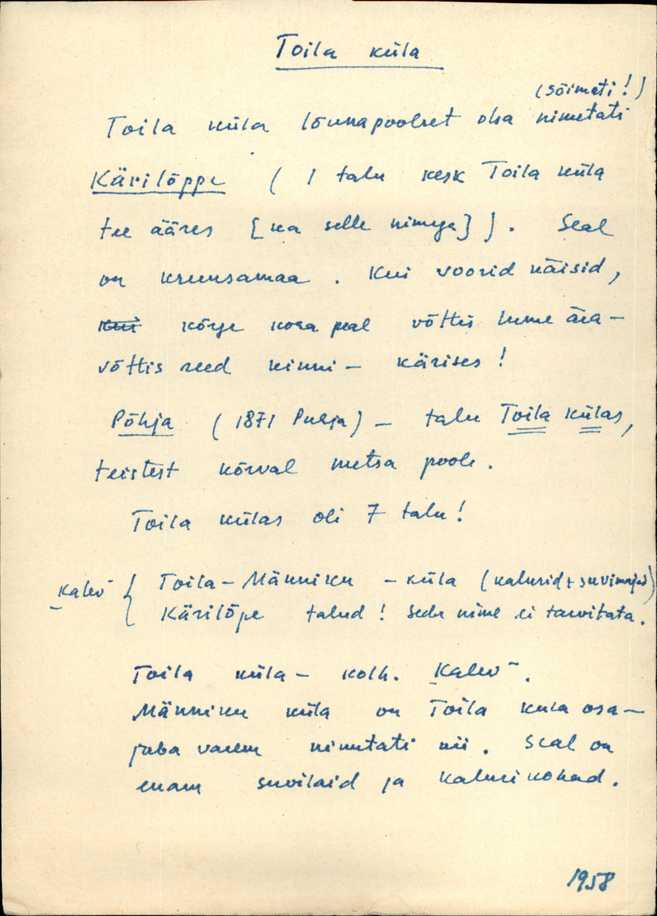 Toila küla
(sõimati!)
Toila küla lõunapoolset osa nimetati
Kärilõppe ( 1 talu kesk Toila küla
tee ääres [ka selle nimega] ). Seal
on kruusamaa. Kui voorid käisid,
kui kõrge koha peal võttis lume ära –
võttis reed kinni – kärises!
Põhja (1871 Puhja) – talu Toila külas,
teistest kõrval metsa poole.
Toila külas oli 7 talu!
"Kalev" { Toila-Männiku – küla (kalurid + suvimajad)
Kärilõpe talud! Seda nime ei tarvitata.
Toila küla – kolh. "Kalev".
Männiku küla on Toila küla osa –
juba varem nimetati nii. Seal on
enam suvilaid ja kalurikohad.
1958